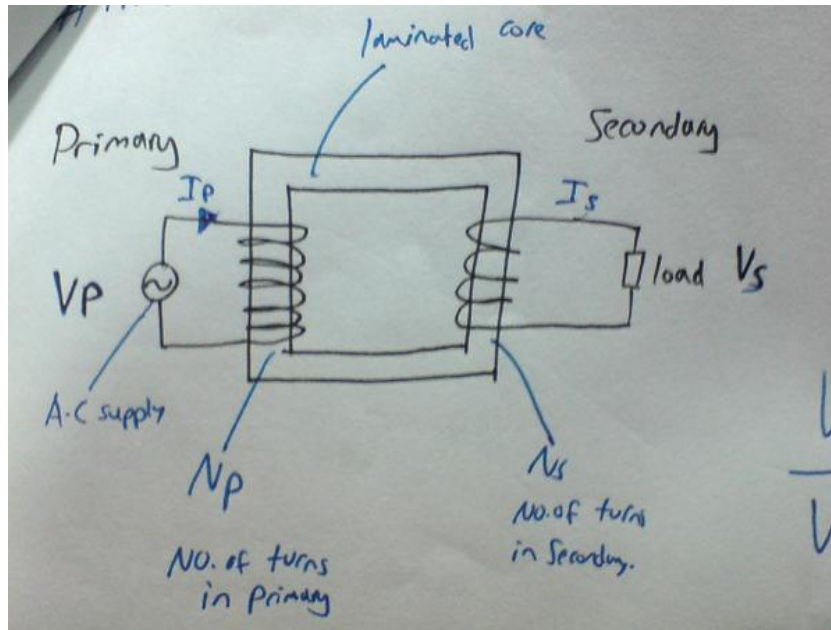 laminated core
Primary
Secondary
Ip
Is
Vp
load Vs
A.C supply
Np
Ns
No. of turns
in Primary
No. of turns
in Secondary.
V